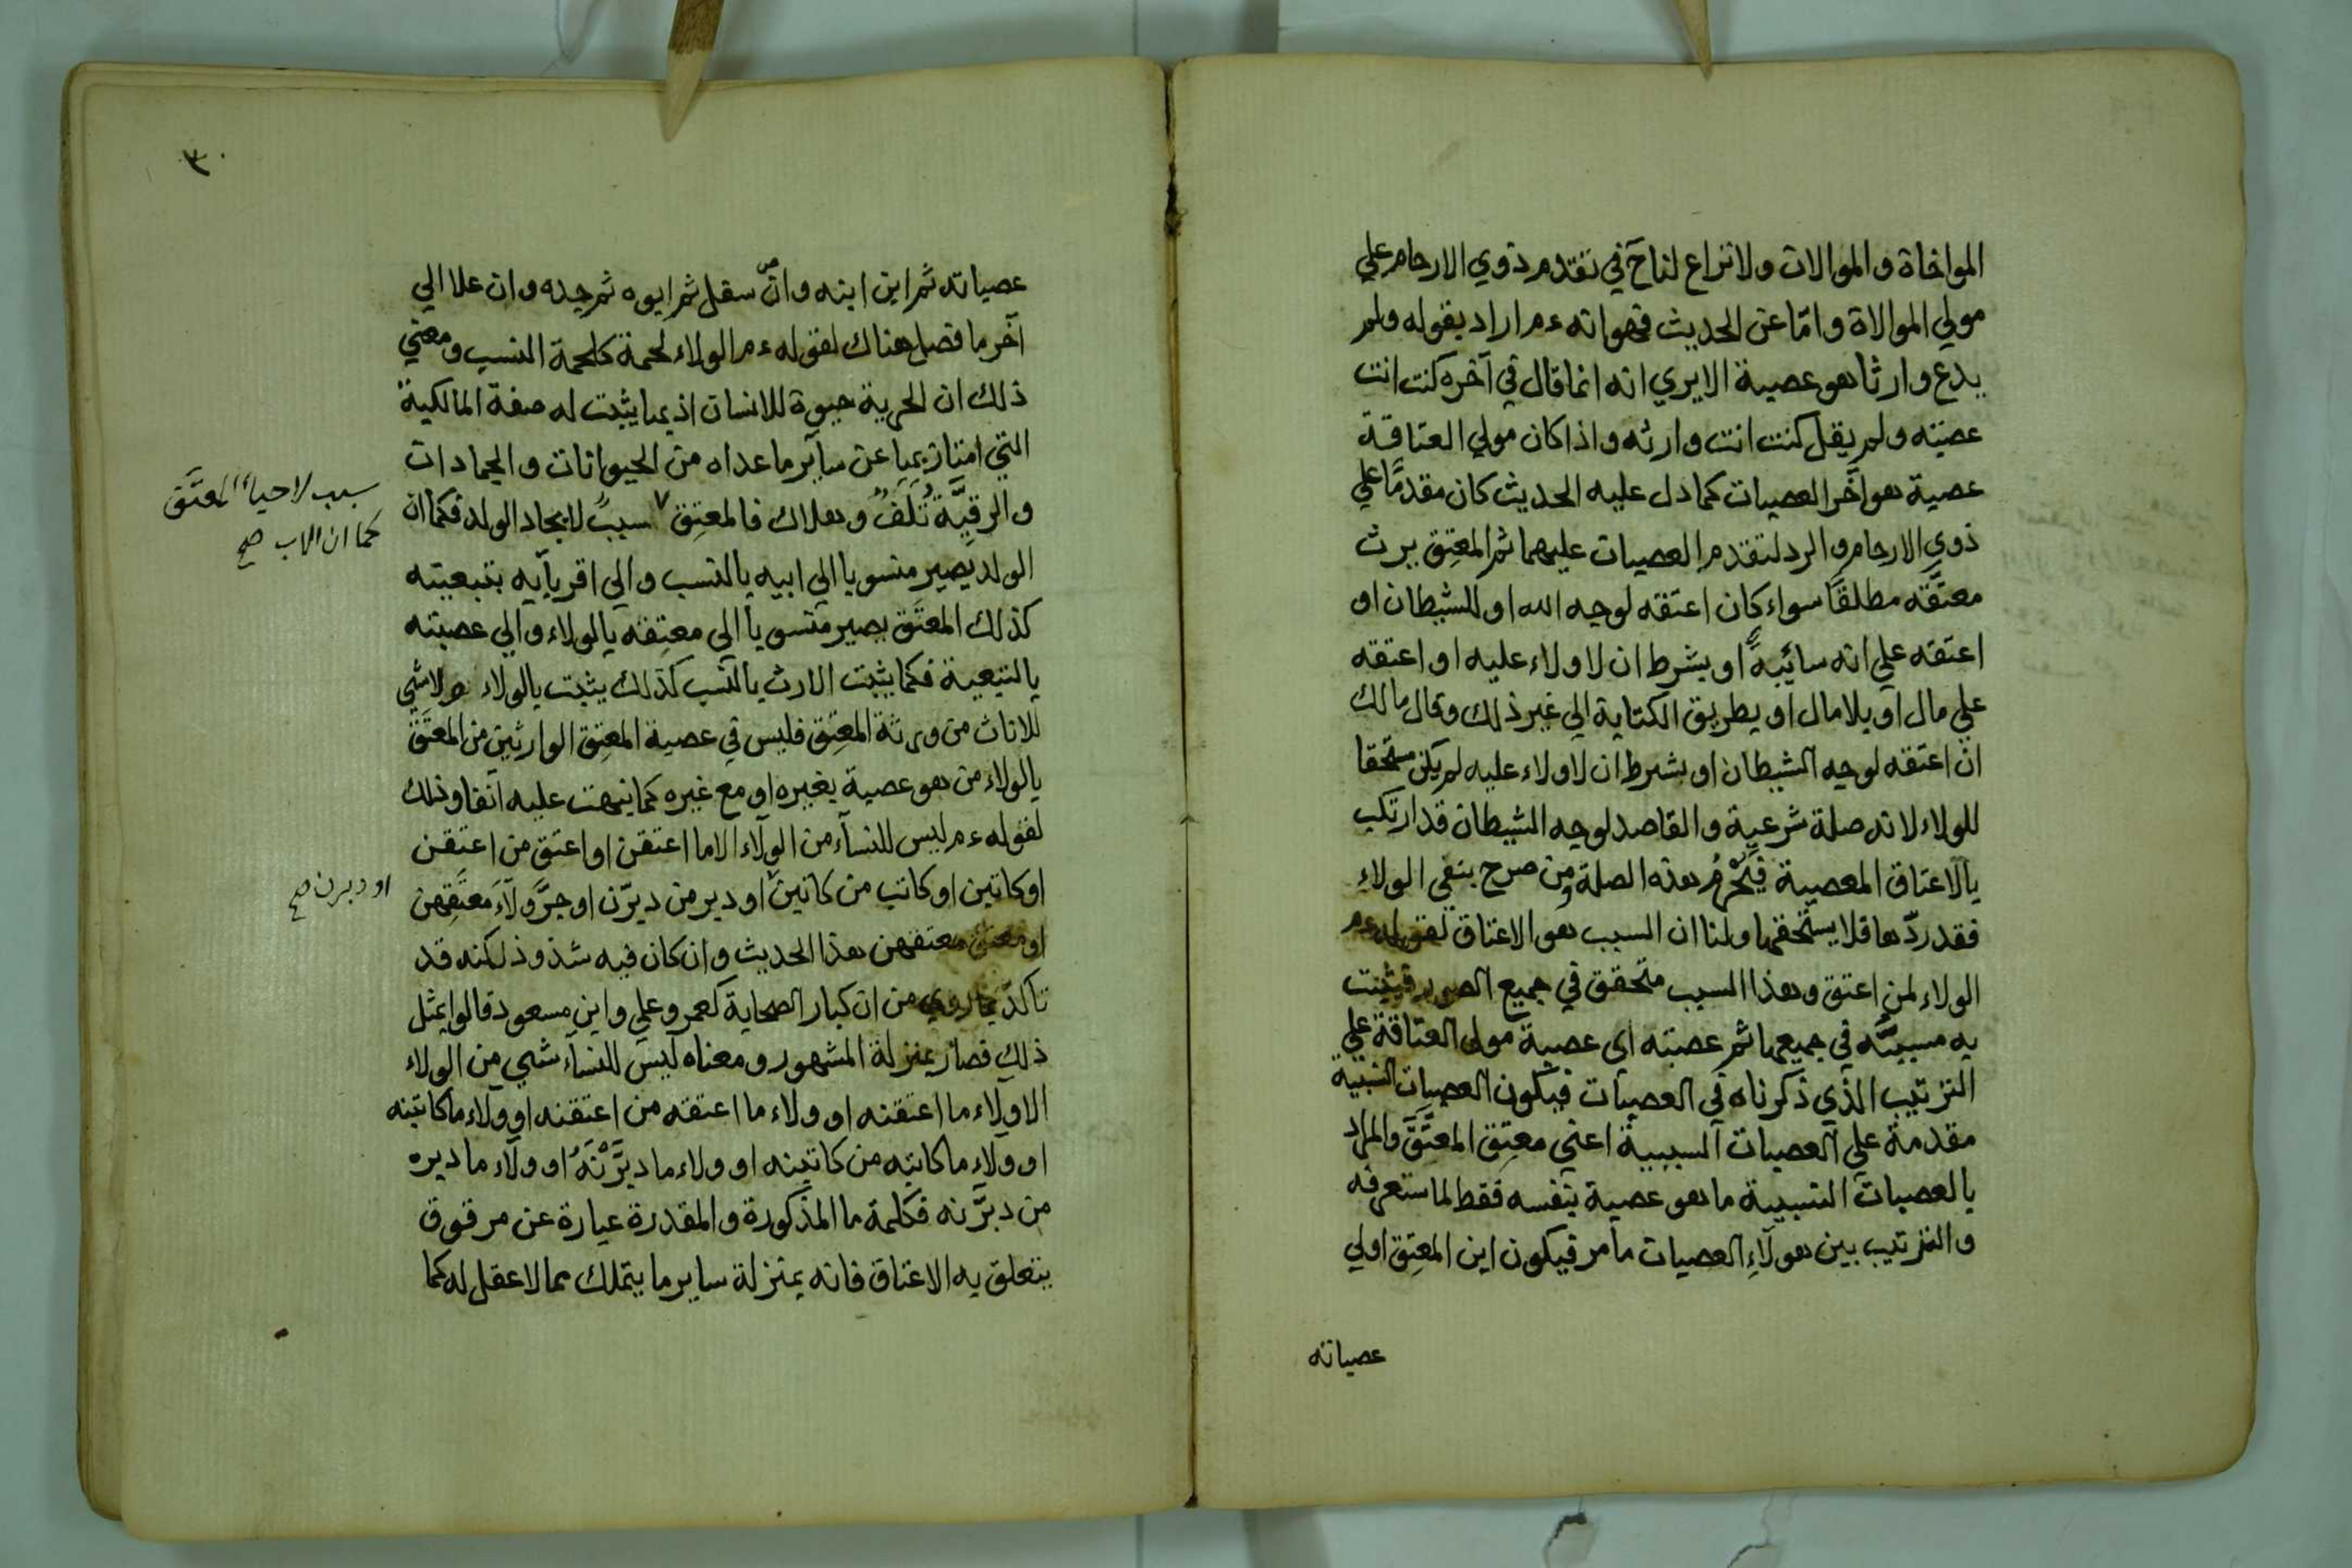 المواخاة والموالات ولا نزاع لنا ح في تقدم ذوي الارحام علي
مولي الموالاة وامّا عن الحديث فهو انه ءم اراد بقوله ولم
يدع وارثا هو عصبة الا يري انه انما قال في آخره كنت انت
عصبته ولم يقل كنت انت وارثه واذا كان مولي العتاقة
عصبة هو آخر العصبات كما دل عليه الحديث كان مقدمًا علي
ذوي الارحام والرد لتقدم العصبات عليهما ثم المعتِق يرث
معتَقه مطلقًا سواء كان اعتقه لوجه الله او للشيطان او
اعتقه علي انه سائبةً او بشرط ان لا ولاء عليه او اعتقه
علي مال او بلا مال او بطريق الكتابة الي غير ذلك وقال مالك
ان اعتقه لوجه الشيطان او بشرط ان لا ولاء عليه لم يكن مستحقا
للولاء لانه صلة شرعية والقاصد لوجه الشيطان قد ارتكب
بالاعتاق المعصية فيُحْرَمُ هذه الصلة ومن صرح بنفي الولاءِ
فقد ردّها فلا يستحقها ولنا ان السبب هو الاعتاق لقوله ءم
الولاء لمن اعتق وهذا السبب متحقق في جميع الصور فيثبت
به مسببَّه في جميعها ثم عصبته اي عصبة مولي العتاقة علي
الترتيب الذي ذكرناه في العصبات فيكون العصبات النسبية
مقدمة علي العصبات السببية اعني معتِق المعتَق والمراد
بالعصبات النسبية ما هو عصبة بنفسه فقط لما ستعرفه
والترتيب بين هولآءِ العصبات ما مر فيكون ابن المعتِق اولي
عصباته
٣٠
عصباته ثم ابن ابنه وان سفل ثم ابوه ثم جده وان علا الي
آخر ما فصل هناك لقوله ءم الولاء لحمة كلحمة النسب ومعني
ذلك ان الحرية حيوة للانسان اذ بها يثبت له صفة المالكية
التي امتاز بها عن سآير ما عداه من الحيوانات والجمادات
والرقيَّة تُلَفٌ وهلاك فالمعتِق ٧ سببٌ لايجاد الولد فكما ان
سبب لاحياء المعتَق
كما ان الاب صح
الولد يصير منسوبا الي ابيه بالنسب والي اقربآيه بتبعيته
كذلك المعتَق يصير منسوبا الي معتِقه بالولاء والي عصبته
بالتبعية فكما يثبت الارث بالنسب كذلك يثبت بالولاء ولا شي
للاناث من ورثة المعتِق فليس في عصبة المعتِق الوارثين من المعتَق
بالولاء من هو عصبة بغيره او مع غيره كما نبهت عليه آنفا وذلك
لقوله ءم ليس للنسآء من الولآء الا ما اعتقن او اعتق من اعتقن
او كاتبن او كاتب من كاتبن او دبر من دبّرن او جرَّ ولآءَ معتَقِهن
او دبرن صح
او معتق معتقهن هذا الحديث وان كان فيه شذوذ لكنه قد
تاكدّ بما روي من ان كبار الصحابة كعمر وعلي وابن مسعود قالوا بمثل
ذلك فصار بمنزلة المشهور ومعناه ليس للنسآء شي من الولاء
الا ولآء ما اعتقنه او ولاء ما اعتقه من اعتقنه او ولآء ما كاتبنه
او ولآء ما كاتبه من كاتبنه او ولاء ما دبَّرْنَهُ او ولآء ما دبره
من دبَّرنه فكلمة ما المذكورة والمقدرة عبارة عن مرقوق
يتعلق به الاعتاق فانه بمنزلة ساير ما يتملك مما لا عقل له كما